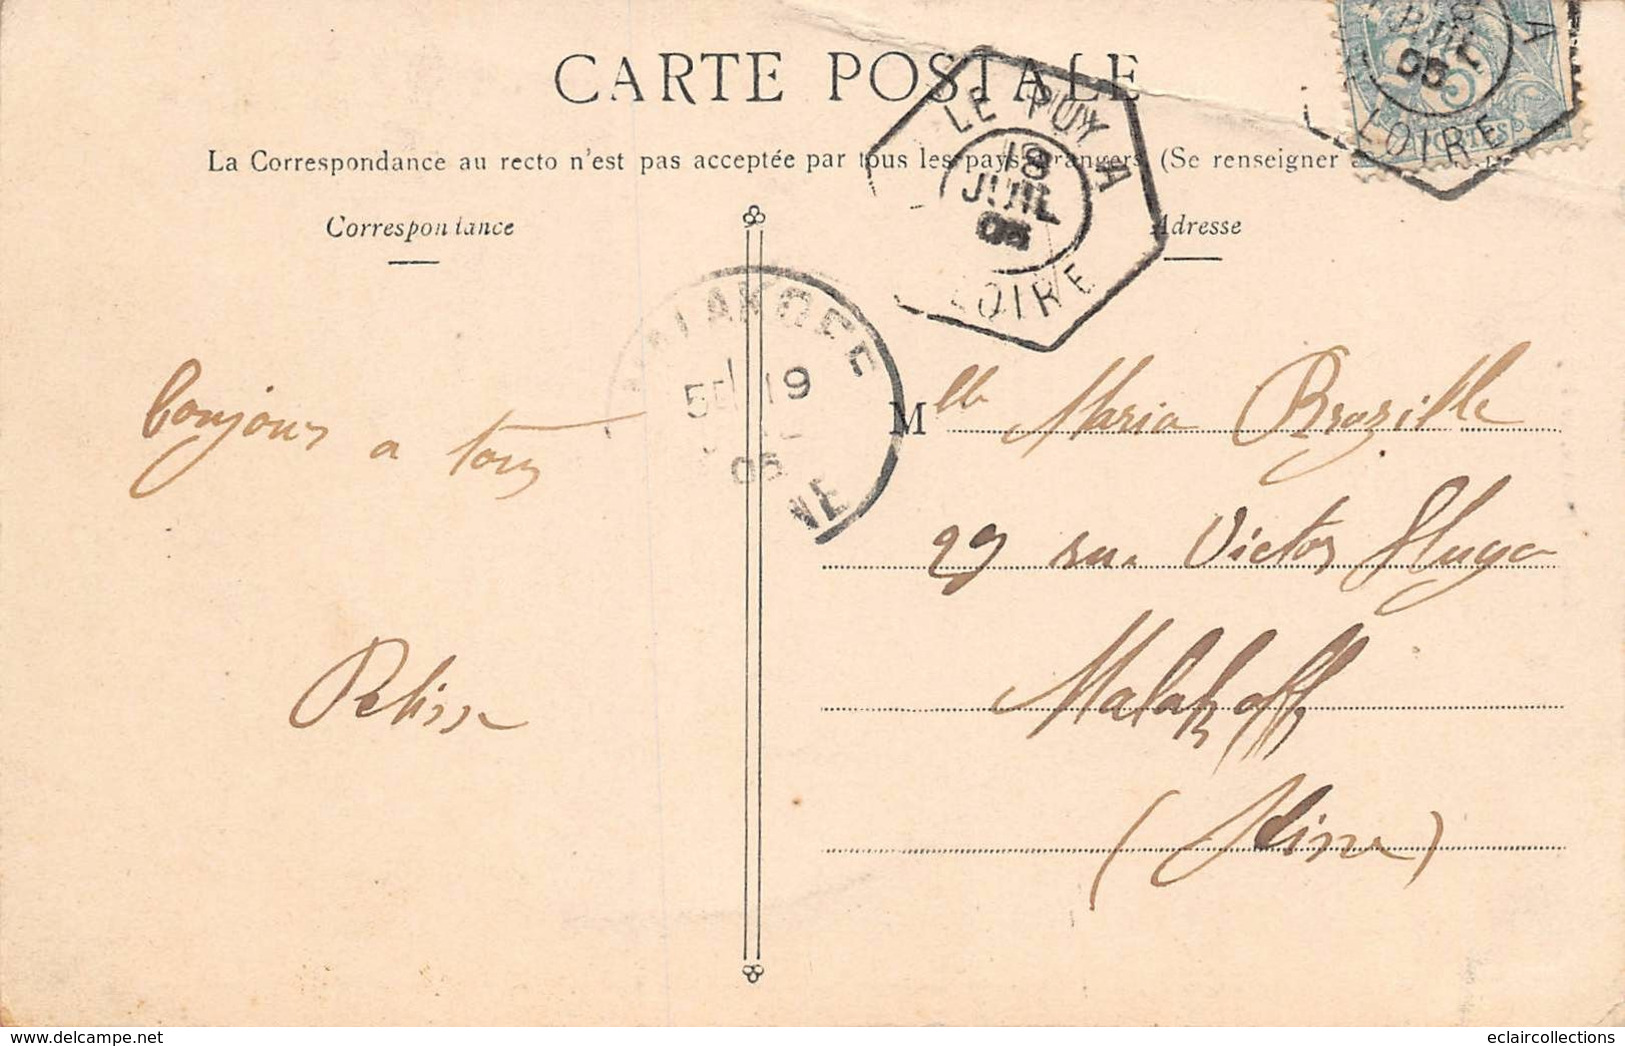 CARTE POSTALE
La Correspondance au recto n'est pas acceptée par tous les pays étrangers (Se renseigner
Correspondance
Adresse
LE PUY A
18
JUIL
05
LOIRE
A
JUIL
05
5c
POSTES
LOIRE
5E 19
05
NE
bonjour a tous
Pelisse
Mlle Maria Brozille
29 rue Victor Hugo
Malakoff
(Seine)
Delcampe.net
eclaircollections